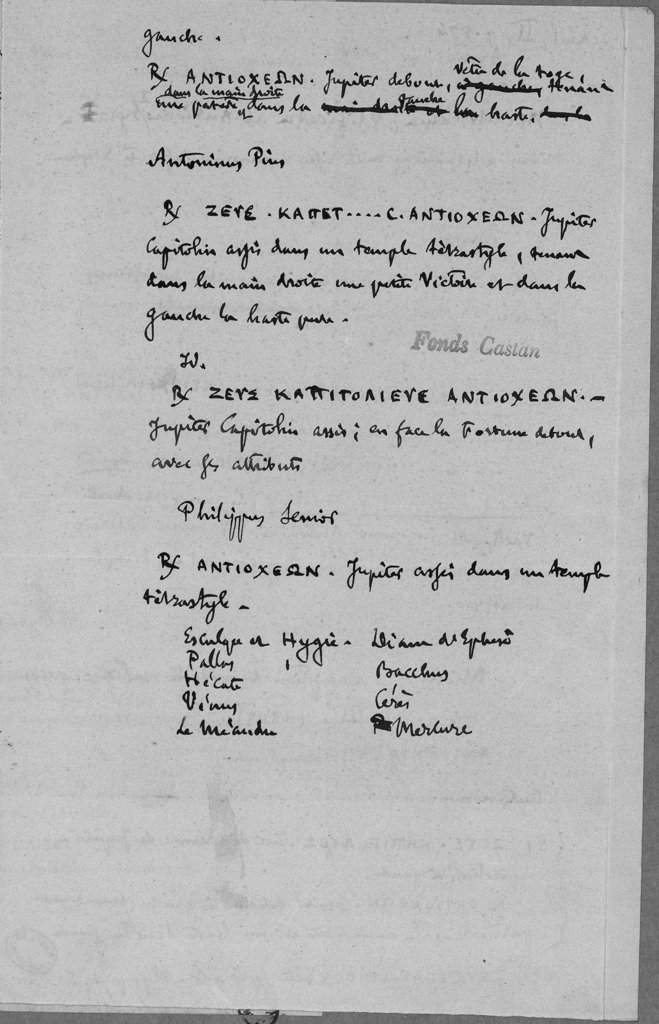 gauche.
℞ ΑΝΤΙΟΧΕΩΝ. Jupiter debout, vêtu de la toge, tenant
dans la main droite
une patère, dans la gauche la haste.
Antoninus Pius
℞ ΖΕΥΣ . ΚΑΠΕΤ.... C. ΑΝΤΙΟΧΕΩΝ - Jupiter
Capitolin assis dans un temple tétrastyle, tenant
dans la main droite une petite Victoire et dans la
gauche la haste pure.
Fonds Castan
Id.
℞ ΖΕΥΣ ΚΑΠΙΤΟΛΙΕΥΕ ΑΝΤΙΟΧΕΩΝ. -
Jupiter Capitolin assis; en face la Fortune debout,
avec ses attributs
Philippus Senior
℞ ΑΝΤΙΟΧΕΩΝ. Jupiter assis dans un temple
tétrastyle -
Esculape et Hygie - Diane d'Ephèse
Pallas
Bacchus
Hécate
Cérès
Vénus
Mercure
Le Méandre